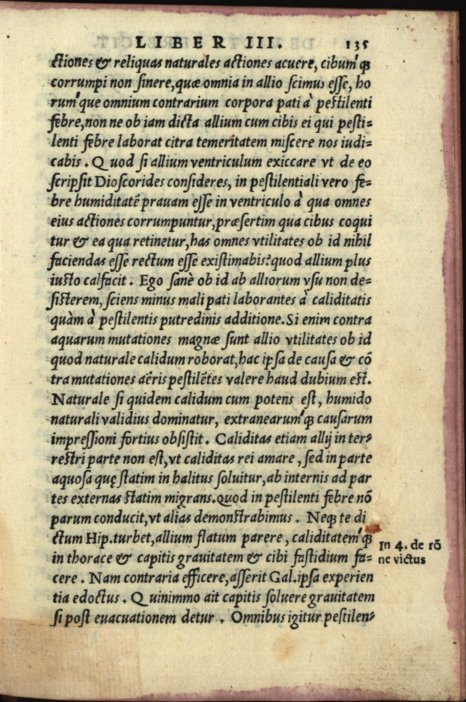 LIBER III. 135
ctiones & reliquas naturales actiones acuere, cibumq́;
corrumpi non sinere, quæ omnia in allio scimus esse, ho
rumq́ue omnium contrarium corpora pati à pestilenti
febre, non ne ob iam dicta allium cum cibis ei qui pesti-
lenti febre laborat citra temeritatem miscere nos iudi-
cabis. Quod si allium ventriculum exiccare vt de eo
scripsit Dioscorides consideres, in pestilentiali vero fe-
bre humiditatẽ prauam esse in ventriculo à qua omnes
eius actiones corrumpuntur, præsertim qua cibus coqui
tur & ea qua retinetur, has omnes vtilitates ob id nihil
faciendas esse rectum esse existimabis? quod allium plus
iusto calfacit. Ego sanè ob id ab alliorum vsu non de-
sisterem, sciens minus mali pati laborantes à caliditatis
quàm à pestilentis putredinis additione. Si enim contra
aquarum mutationes magnæ sunt allio vtilitates ob id
quod naturale calidum roborat, hac ipsa de causa & cõ
tra mutationes aëris pestilẽtes valere haud dubium est.
Naturale si quidem calidum cum potens est, humido
naturali validius dominatur, extranearumq́; causarum
impressioni fortius obsistit. Caliditas etiam allij in ter-
restri parte non est, vt caliditas rei amare, sed in parte
aquosa quę statim in halitus soluitur, ab internis ad par
tes externas statim migrans. quod in pestilenti febre nõ
parum conducit, vt aliàs demonstrabimus. Neq; te di
ctum Hip. turbet, allium flatum parere, caliditatemq́;
in thorace & capitis grauitatem & cibi fastidium fa-
cere. Nam contraria efficere, asserit Gal. ipsa experien
tia edoctus. Quinimmo ait capitis soluere grauitatem
si post euacuationem detur. Omnibus igitur pestilen-
In 4. de rõ
ne victus